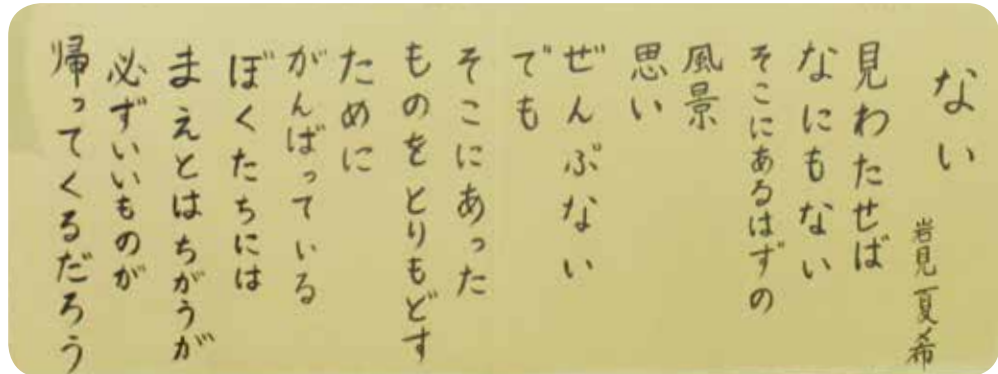 ない
岩見夏希
見わたせば
なにもない
そこにあるはずの
風景
思い
ぜんぶない
でも
そこにあった
ものをとりもどす
ために
がんばっている
ぼくたちには
まえとはちがうが
必ずいいものが
帰ってくるだろう